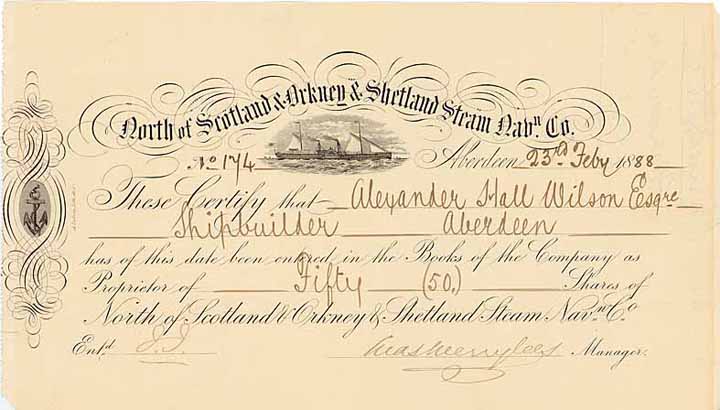 North of Scotland & Orkney & Shetland Steam Navn. Co.
No 174 Aberdeen 23rd Feby 1888
These Certify that Alexander Hall Wilson Esqre
Shipbuilder Aberdeen
has of this date been entered in the Books of the Company as
Proprietor of Fifty (50.) Shares of
North of Scotland & Orkney & Shetland Steam Navn. Co.
Entd. Manager.